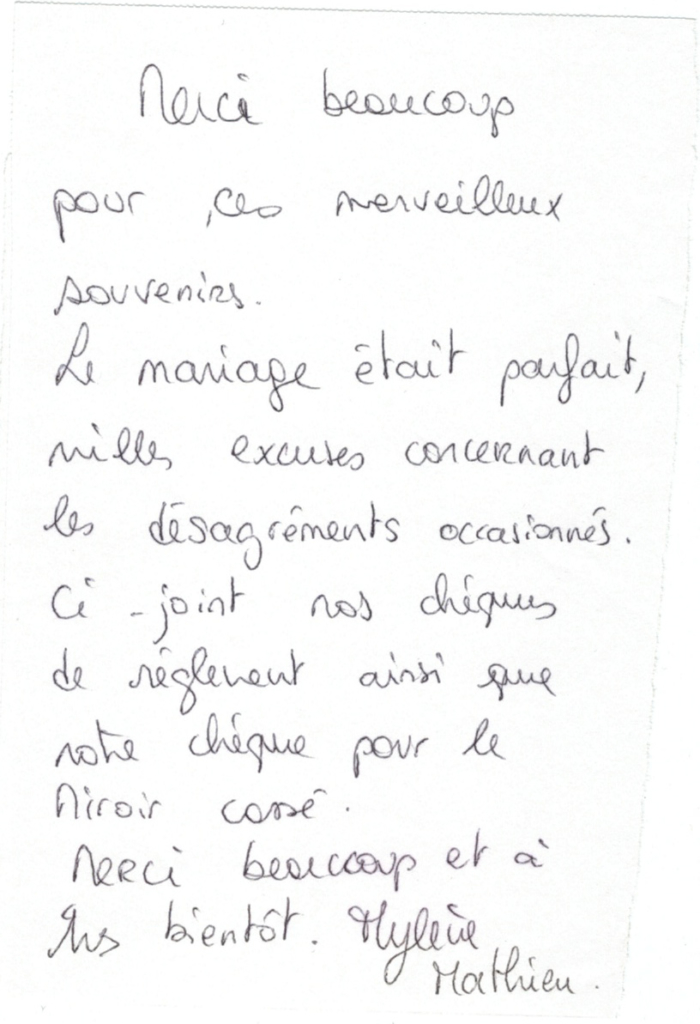 Merci beaucoup
pour ces merveilleux
souvenirs.
Le mariage était parfait,
milles excuses concernant
les désagréments occasionnés.
Ci-joint nos chèques
de réglement ainsi que
notre chéque pour le
Miroir cassé.
Merci beaucoup et à
très bientôt. Mylène
Mathieu.